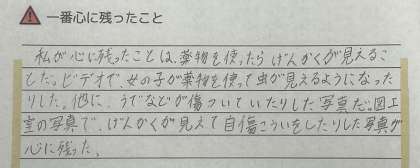 一番心に残ったこと
私が心に残ったことは、薬物を使ったらげんかくが見えるこ
とだ。ビデオで、女の子が薬物を使って虫が見えるようになった
りした。他に、うでなどが傷ついていたりした写真だ。図工
室の写真で、げんかくが見えて自傷こういをしたりした写真が
心に残った、